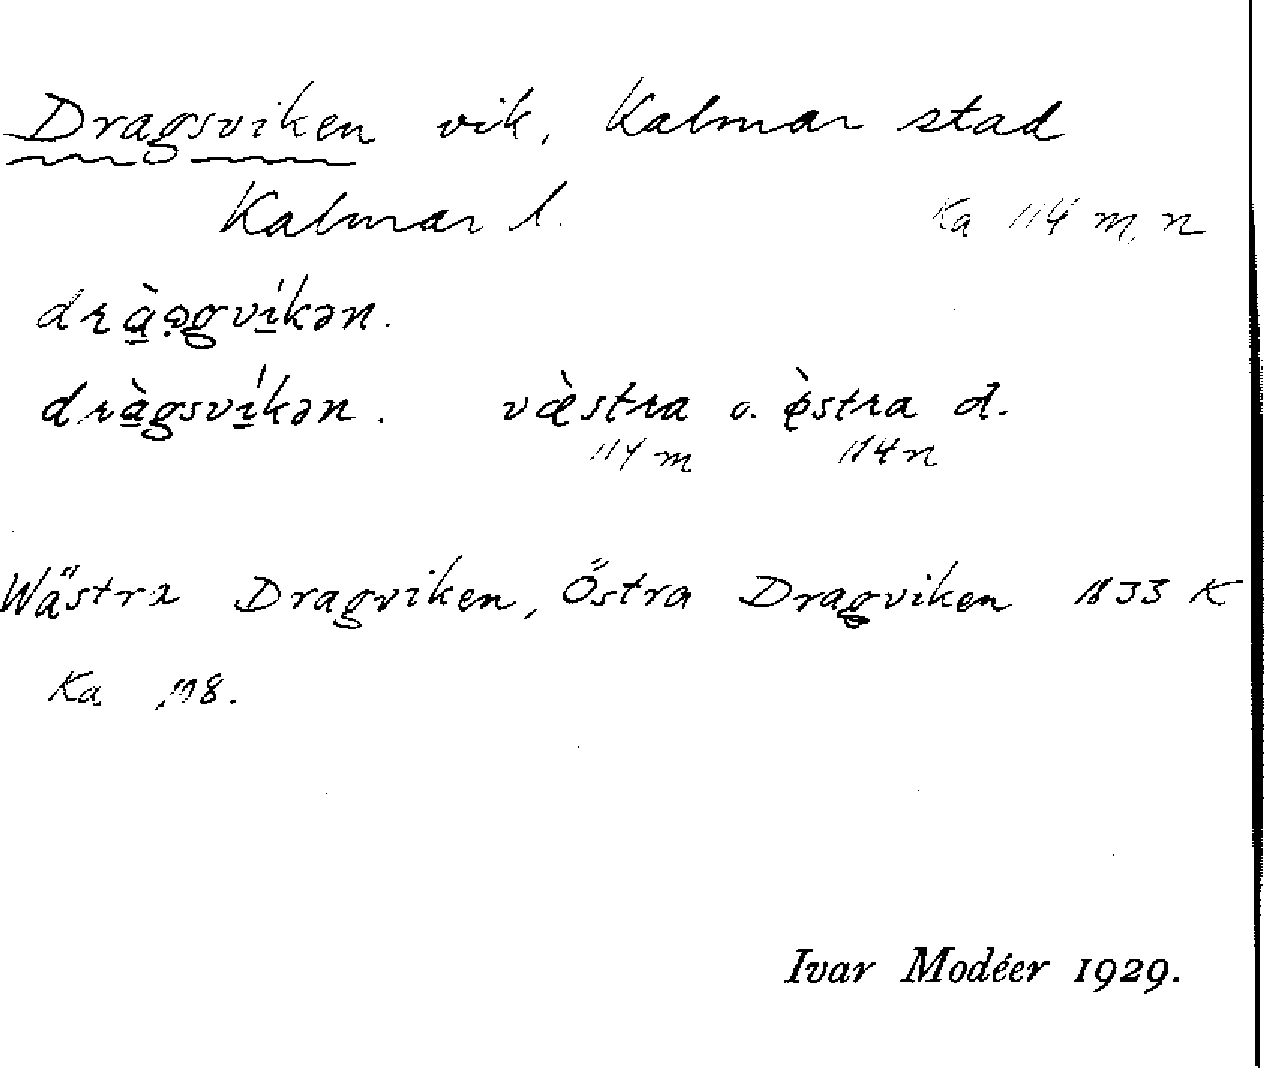 Dragsviken vik, Kalmar stad
Kalmar l. Ka 114 m, n
drà̱ə̣gvı̱́kən.
drà̱gsvı̱́kən. væ̀stra o. ø̀stra d.
114 m 114 n
Wästra Dragviken, Östra Dragviken 1833 K
Ka 118.
Ivar Modéer 1929.